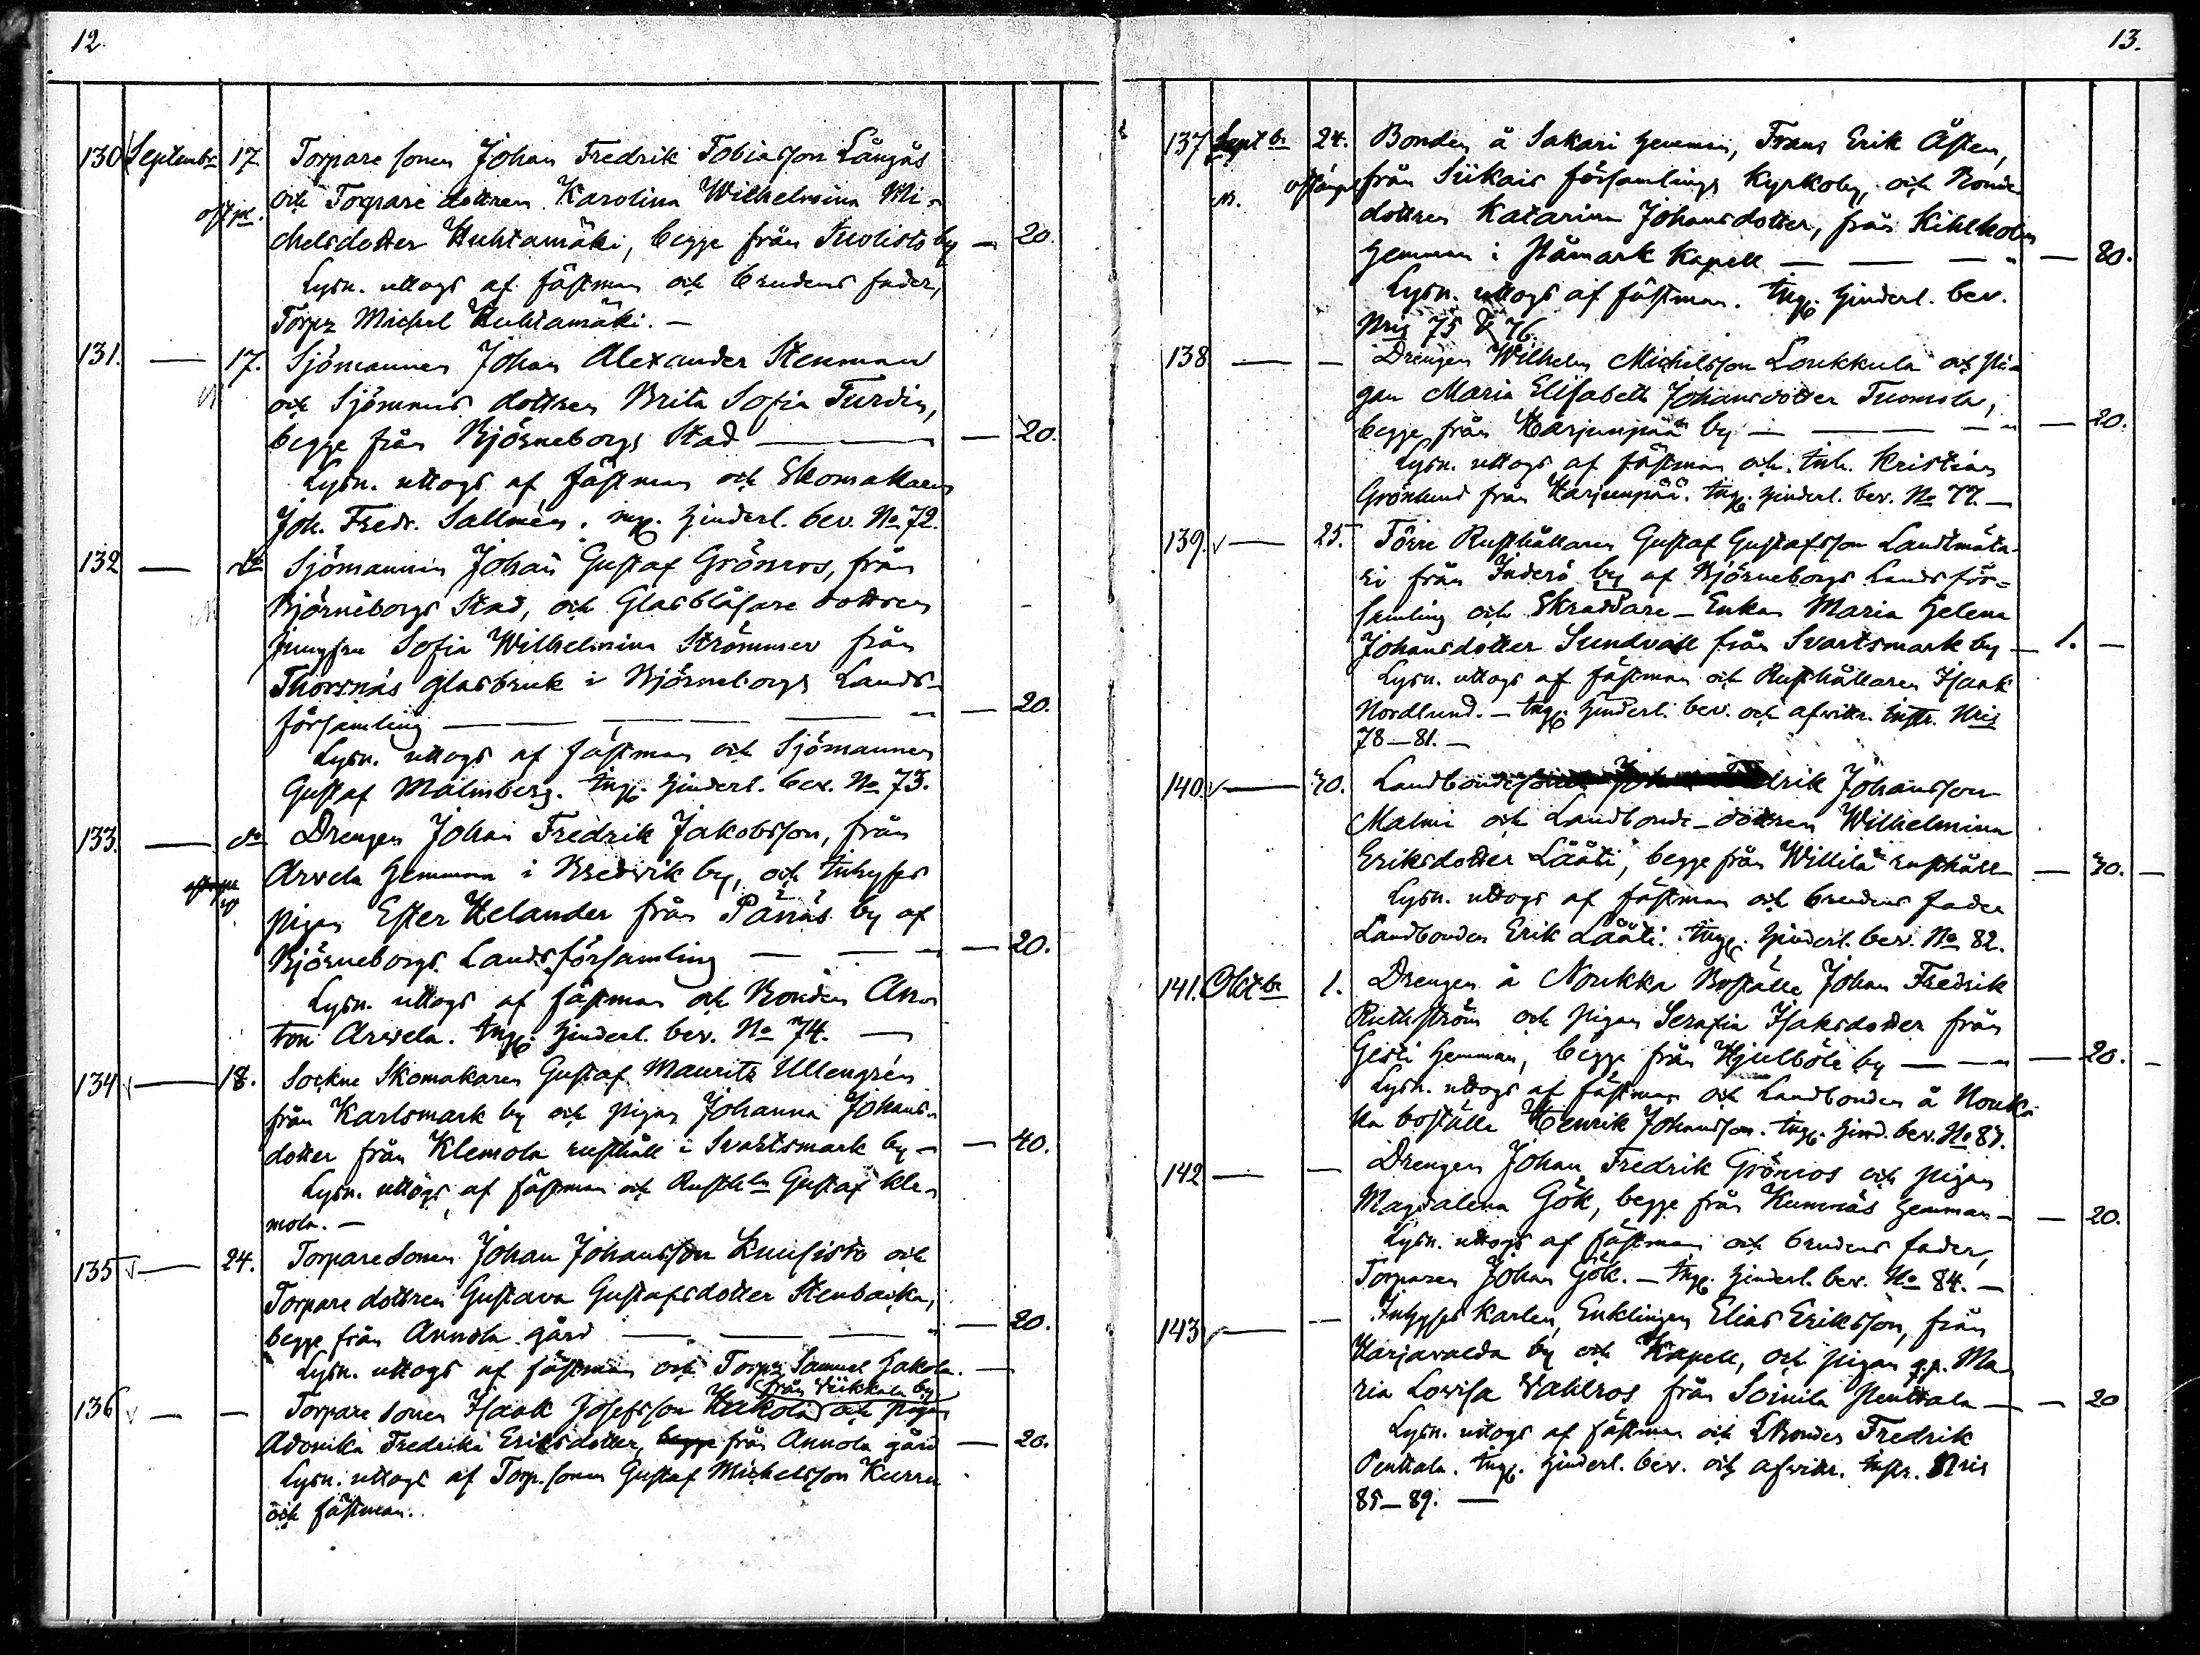 12.
130 Septembr 17. Torpare sonen Johan Fredrik Tobiasson Långås
och Torpare dottren Karolina Wilhelmina Mi-
chelsdotter Huhtamäki, begge från Inolists by — 20.
Lysn. uttogs af fästman och brudens fader,
Torpr Michel Huhtamäki. —
131. — 17. Sjömannen Johan Alexander Stenman
och Sjömans dottren Brita Sofia Turdin,
begge från Björneborgs Stad — — 20.
Lysn. uttogs af fästman och Skomakaren
Joh. Fredr. Sallmén. ingg. hinderl. bev. No 72.
132 — do Sjömannen Johan Gustaf Grönroos, från
Björneborgs Stad, och Glasblåsare dottren
jungfru Sofia Wilhelmina Strömmer från
Thorsnäs glasbruk i Björneborgs Lands-
församling — — — — 20.
Lysn. uttogs af fästman och Sjömannen
Gustaf Malmberg. Ingg. hinderl. bev. No 73.
133. — do Drengen Johan Fredrik Jakobsson, från
Arvela hemman i Bredvik by, och Inhyses
pigan Ester Helander från Pänäs by af
Björneborgs Landsförsamling — — — 20.
Lysn. uttogs af fästman och Bonden An-
ton Arvela. Ingg. hinderl. bev. No 74. —
134 v — 18. Sockne Skomakaren Gustaf Mauritz Ullengrén
från Karlsmark by och pigan Johanna Johans-
dotter från Klemola rusthåll i Svartsmark by — — 40.
Lysn. uttogs af fästman och Rusthln Gustaf Kle-
mola. —
135 v — 24. Torpare sonen Johan Johansson Kuusisto och
Torpare dottren Gustava Gustafsdotter Stenbacka,
begge från Annola gård — — — 20.
Lysn. uttogs af fästman och Torpr Samuel Hakola. —
från Viikkala by
136 v — — Torpare sonen Isaak Josefsson Hakola och pigan
Adonika Fredrika Eriksdotter, begge från Annola gård — 20.
Lysn. uttogs af Torp. sonen Gustaf Michelsson Kurru
och fästman.
13.
137 Septbr 24. Bonden å Sakari hemman, Frans Erik Åsten,
från Siikais församlings Kyrkoby, och Bonde
dottren Katarina Johansdotter, från Kihlholm
hemman i Påmark Kapell — — — 80.
Lysn. uttogs af fästman. Ingg. hinderl. bev.
Nris 75 & 76.
138 — — Drengen Wilhelm Michelsson Loukkula och pi-
gan Maria Elisabeth Johansdotter Tuomola,
begge från Harjunpää by — — — 20.
Lysn. uttogs af fästman och Inh. Kristian
Grönlund från Harjunpää. Ingg. hinderl. bev. No 77. —
139. v — 25. Förre Rusthållaren Gustaf Gustafsson Landtmäta-
ri från Inderö by af Björneborgs Landsför-
samling och Skraddare-Enkan Maria Helena
Johansdotter Sundvall från Svartsmark by — 1. —
Lysn. uttogs af fästman och Rusthållaren Isaak
Nordlund. — Ingg. hinderl. bev. och afvittr. instr. Nris
78—81. —
140. v — 30. Landbondesonen Johan Fredrik Johansson
Malmi och Landbonde-dottren Wilhelmina
Eriksdotter Lääti, begge från Willilä rusthåll — — 30. —
Lysn. uttogs af fästman och brudens fader
Landbonden Erik Lääti. Ingg. hinderl. bev. No 82.
141. Oktbr 1. Drengen å Noukka Boställe Johan Fredrik
Ruthström och pigan Serafia Isaksdotter från
Gisti hemman, begge från Hjulböle by — — — 20. —
Lysn. uttogs af fästman och Landbonden å Nouk-
ka boställe Henrik Johansson. Ingg. hind. bev. No 83.
142 — — Drengen Johan Fredrik Grönroos och pigan
Magdalena Gök, begge från Kumnäs hemman — — 20.
Lysn. uttogs af fästman och brudens fader,
Torparen Johan Gök. — Ingg. hinderl. bev. No 84. —
143 v — — Inhyses karlen, Enklingen Elias Eriksson, från
Harjavalda by och Kapell, och pigan q.p. Ma-
ria Lovisa Vahlros från Soinila Penttala — — 20
Lysn. uttogs af fästman och Bonden Fredrik
Penttala. Ingg. hinderl. bev. och afvittr. instr. Nris
85—89. —